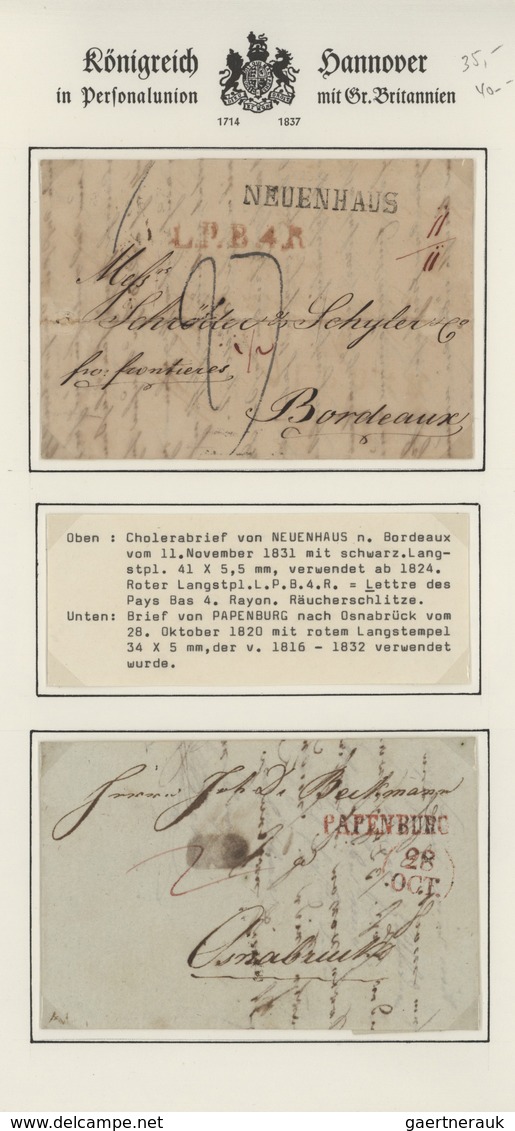 Königreich Hannover
in Personalunion mit Gr. Britannien
1714 1837
35,-
40.-
NEUENHAUS
L.P.B.4.R
11
11
Mess
Schröder & Schyler & Co
fro: frontieres
27
Bordeaux
Oben : Cholerabrief von NEUENHAUS n. Bordeaux
vom 11.November 1831 mit schwarz.Lang-
stpl. 41 X 5,5 mm, verwendet ab 1824.
Roter Langstpl.L.P.B.4.R. = Lettre des
Pays Bas 4. Rayon. Räucherschlitze.
Unten: Brief von PAPENBURG nach Osnabrück vom
28. Oktober 1820 mit rotem Langstempel
34 X 5 mm,der v. 1816 - 1832 verwendet
wurde.
Herrn Joh Di Beckmann
PAPENBURG
28
OCT.
Osnabruck
gaertnerauk